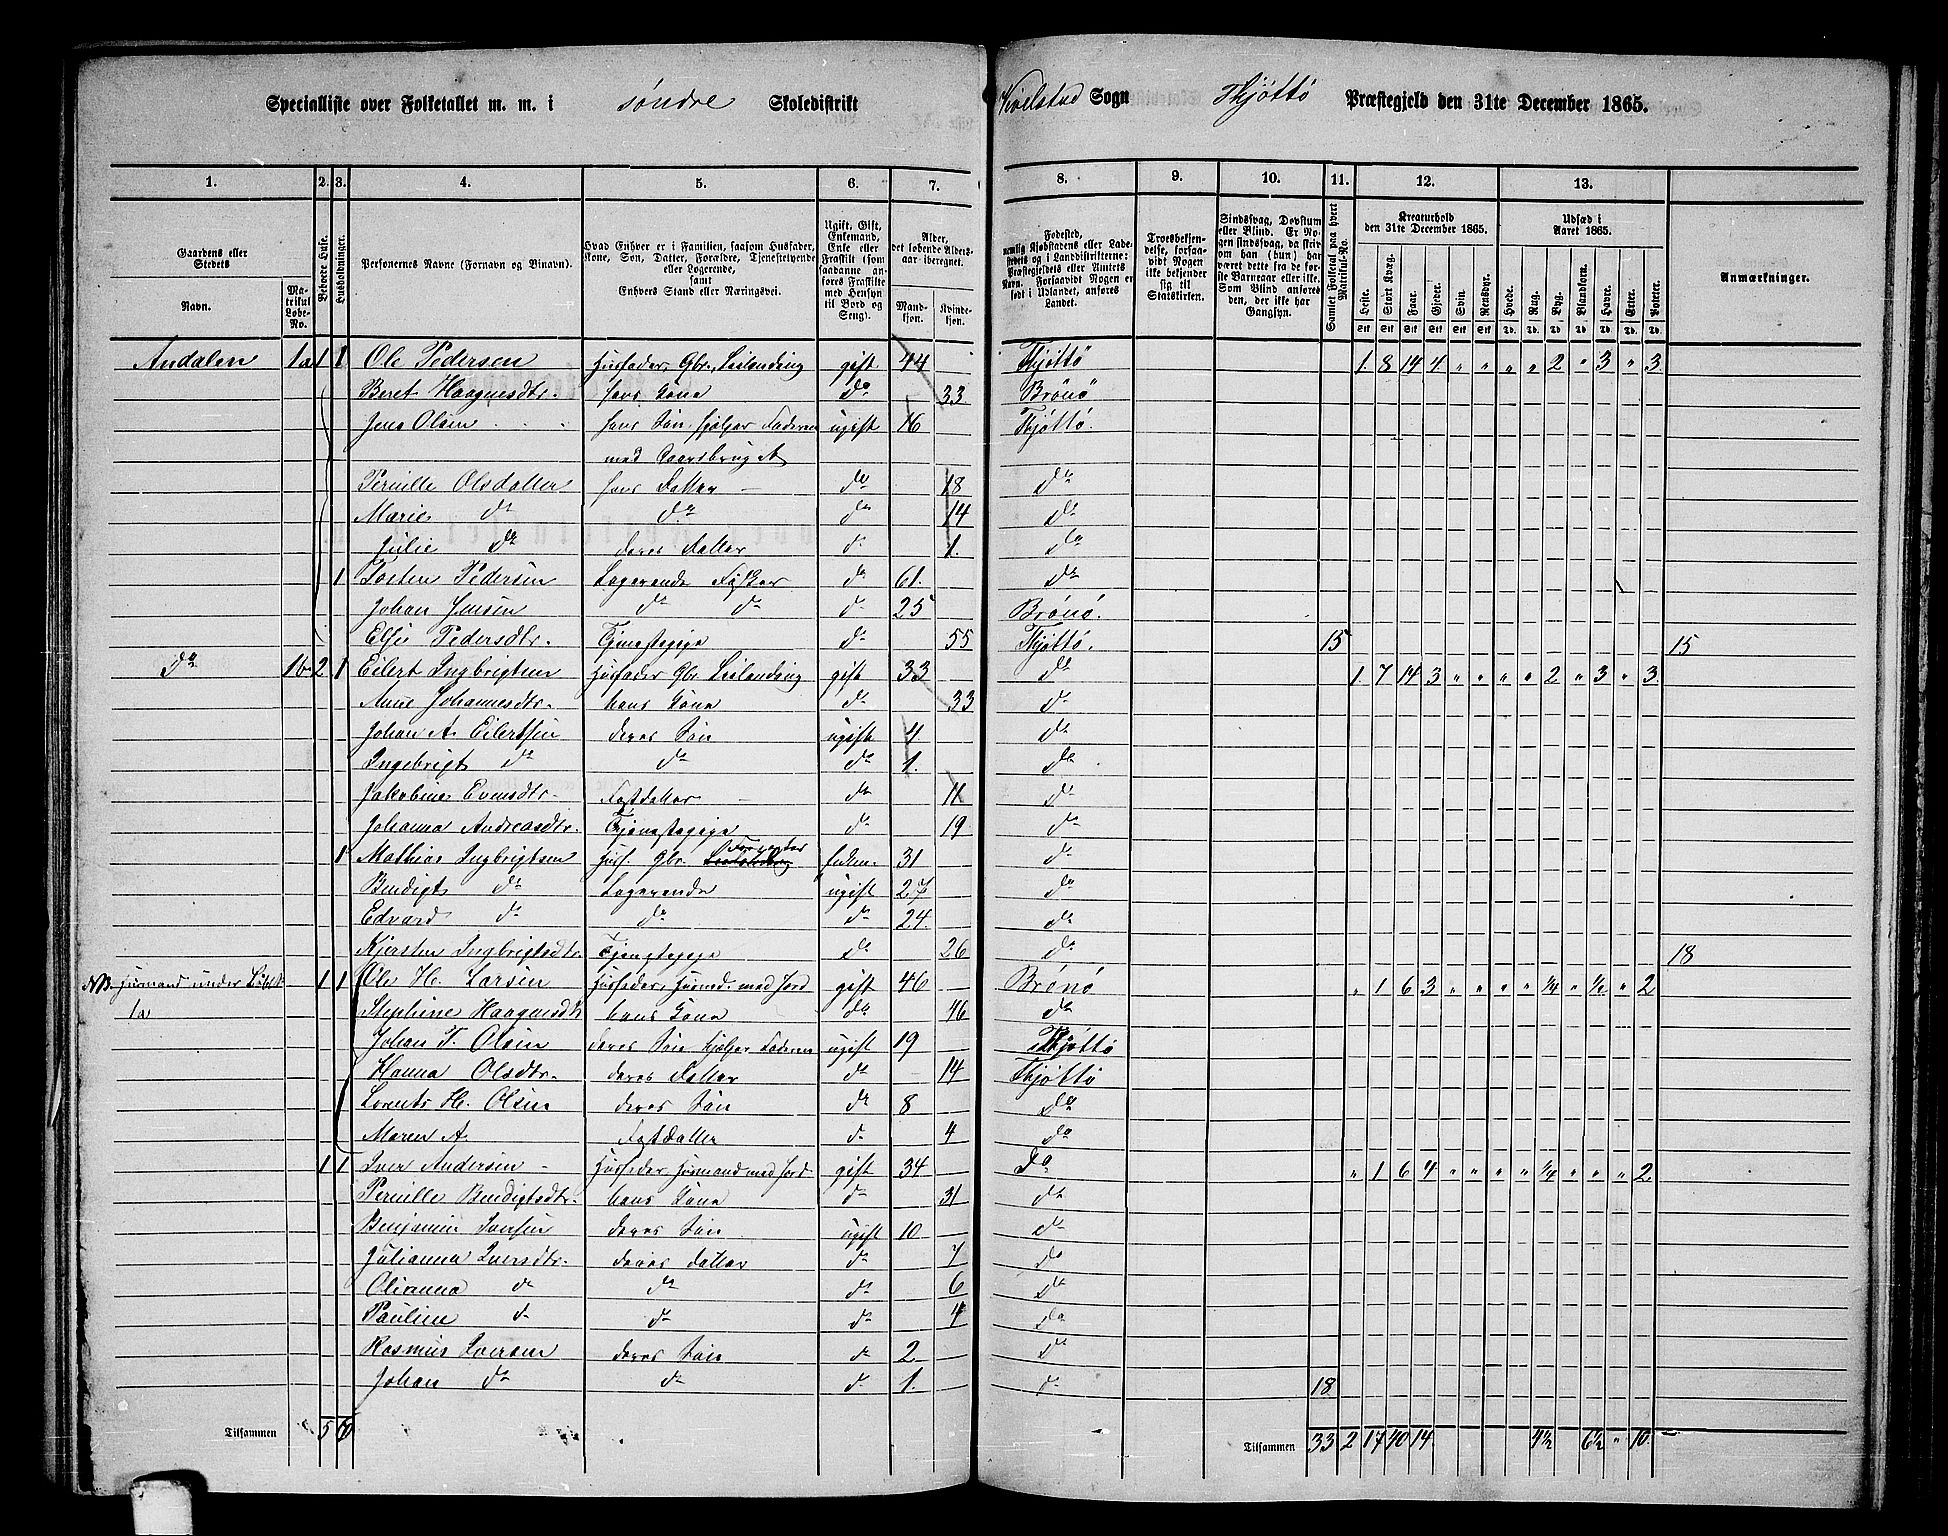 Specialliste over Folketallet m. m. i søndre Skoledistrikt Vivelstad Sogn Thjøttø Præstegjeld den 31te December 1865.
1. 2. 3. 4. 5. 6. 7. 8. 9. 10. 11. 12. 13.
Gaardens eller Stedets Navn. Matrikul Løbe-No. Beboede Huse. Husholdninger. Personernes Navne (Fornavn og Tilnavn). Hvad Enhver er i Familien, saasom Husfader, Kone, Søn, Datter, Forældre, Tjenestetyende eller Logerende, samt Enhvers Stand eller Næringsvei. Ugift, Gift, Enkemand, Enke eller Fraskilt (saasom saadanne anføres Fraskilte med Hensyn til Bord og Seng). Alder, det løbende Aldersaar iberegnet. Mandkjøn. Kvindekjøn.
Fødested, Troesbekjendelse, forsaavidt Nogen ikke bekjender sig til Statskirken. Sindssvag, Døvstum eller Blind. Samlet Folketal paa hvert Matrikul-No. Kreaturhold den 31te December 1865. Udsæd i Aaret 1865. Anmærkninger.
Heste. Stort Kvæg. Faar. Gjeder. Svin. Rensdyr. Hvede. Rug. Byg. Blandkorn. Havre. Erter. Poteter.
Andalen 1a 1 1 Ole Pedersen Husfader, Gbr., Leilending gift 44 Thjøttø 1. 8 14 4. " " " " 2 " 3 " 3
Beret Haagensdtr. hans Kone do 33 Brønø
Jens Olsen hans Søn, hjelper Faderen ugift 16 Thjøttø.
med Gaardsbruget
Pernille Olsdatter hans Datter do 18 do
Marie do do do 14 do
Julie do deres Datter do 1. do
1 Tosten Pedersen Logerende Fisker do 61. do
Johan Jensen do do do 25 Brønø.
Else Pedersdtr. Tjenestepige do 55 Thjøttø. 15 15
do 1b 2 1 Eilert Ingbrigtsen Husfader Gbr. Leilending gift 33 do 1. 7 14 3 " " " " 2 " 3 " 3.
Anne Johannesdtr. hans Kone do 33 do
Johan A. Eilertsen deres Søn ugift 4 do
Ingebrigt do do do 1. do
Jakobine Evensdtr. Fostdatter do 11 do
Johanna Andreasdtr. Tjenestepige do 19 do
1 Mathias Ingbrigtsen Husf. Gbr. Leilending Forpagter Enkem. 31 do
Bendigt do Logerende ugift 27 do
Edvard do do do 24. do
Kjersten Ingbrigtsdtr. Tjenestepige do 26 do 18
NB. Husmand under Løbe N 1 1 Ole H. Larsen Husfader, Husmd. med Jord gift 46 Brønø " 1 6 3 " " " " ¼ " ½ " 2
1a Stephine Haagensdtr hans Kone do 46 do
Johan T. Olsen deres Søn hjelper Faderen ugift 19 Thjøttø
Hanna Olsdtr. deres Datter do 14 Thjøttø
Lorents H. Olsen deres Søn do 8 do
Maren A. Fostdatter do 4 do
1 1 Iver Andersen Husfader Husmand med Jord gift 34 Do " 1 6 4 " " " " ¼ " " " 2.
Pernille Bendigtsdtr. hans Kone do 31 do
Benjamin Iversen deres Søn ugift 10 do
Julianna Iversdtr. deres datter do 7 do
Olianna do do do 6 do
Pauline do do do 4 do
Rasmus Iversen deres Søn do 2 do
Johan do do do 1. do 18
Tilsammen 5 6 Tilsammen 33 2 17 40 14. 4½ 6½ " 10.